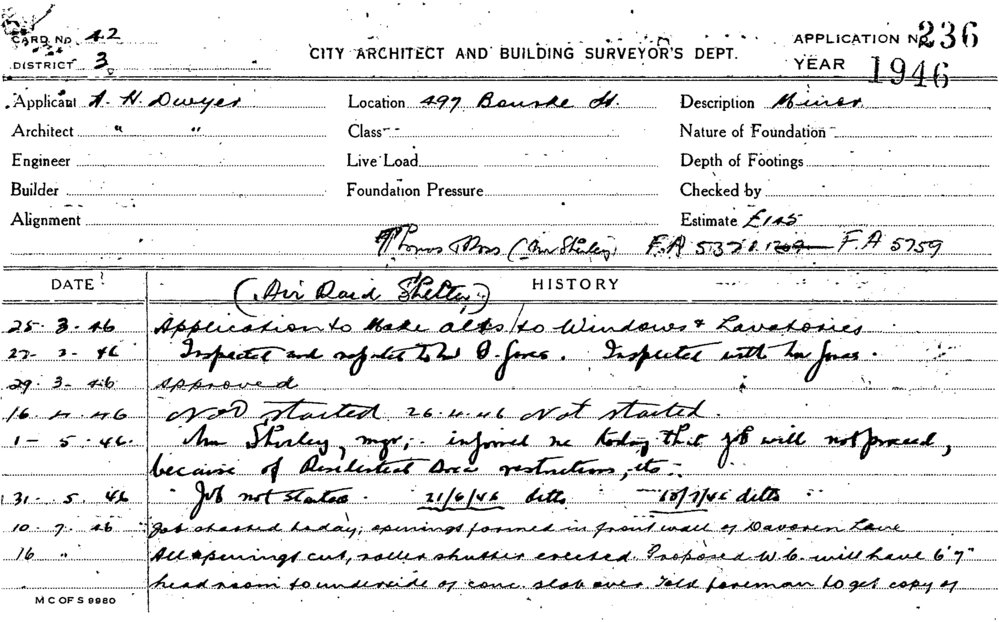 CARD NO 42
DISTRICT 3
CITY ARCHITECT AND BUILDING SURVEYOR'S DEPT.
APPLICATION NO 236
YEAR 1946
Applicant A. H. Dwyer Location 497 Bourke St. Description Minor
Architect " " Class Nature of Foundation
Engineer Live Load Depth of Footings
Builder Foundation Pressure Checked by
Alignment Estimate £145
Ross (Mr Shirley) F.A 5759
DATE HISTORY
(Air Raid Shelter)
25. 3. 46 Application to Make alts to Windows & Lavatories
Inspected and Jones. Inspected with Mr Jones.
29. 3. 46 Approved
16. 4. 46 Not started 26.4.46 Not started.
1 - 5. 46. Mr Shirley, mgr, informed me today that job will not proceed,
because of Residential Area restrictions, etc.
31. 5. 46 Job not started. 21/6/46 ditto 10/7/46 ditto
10. 7. 46 Job started today, openings formed in front wall of Davoren Lane
16 " All openings cut, roller shutter erected. Proposed W.C. will have 6'7"
head room to underside of conc. slab over. Told foreman to get copy of
M C OF S 9980